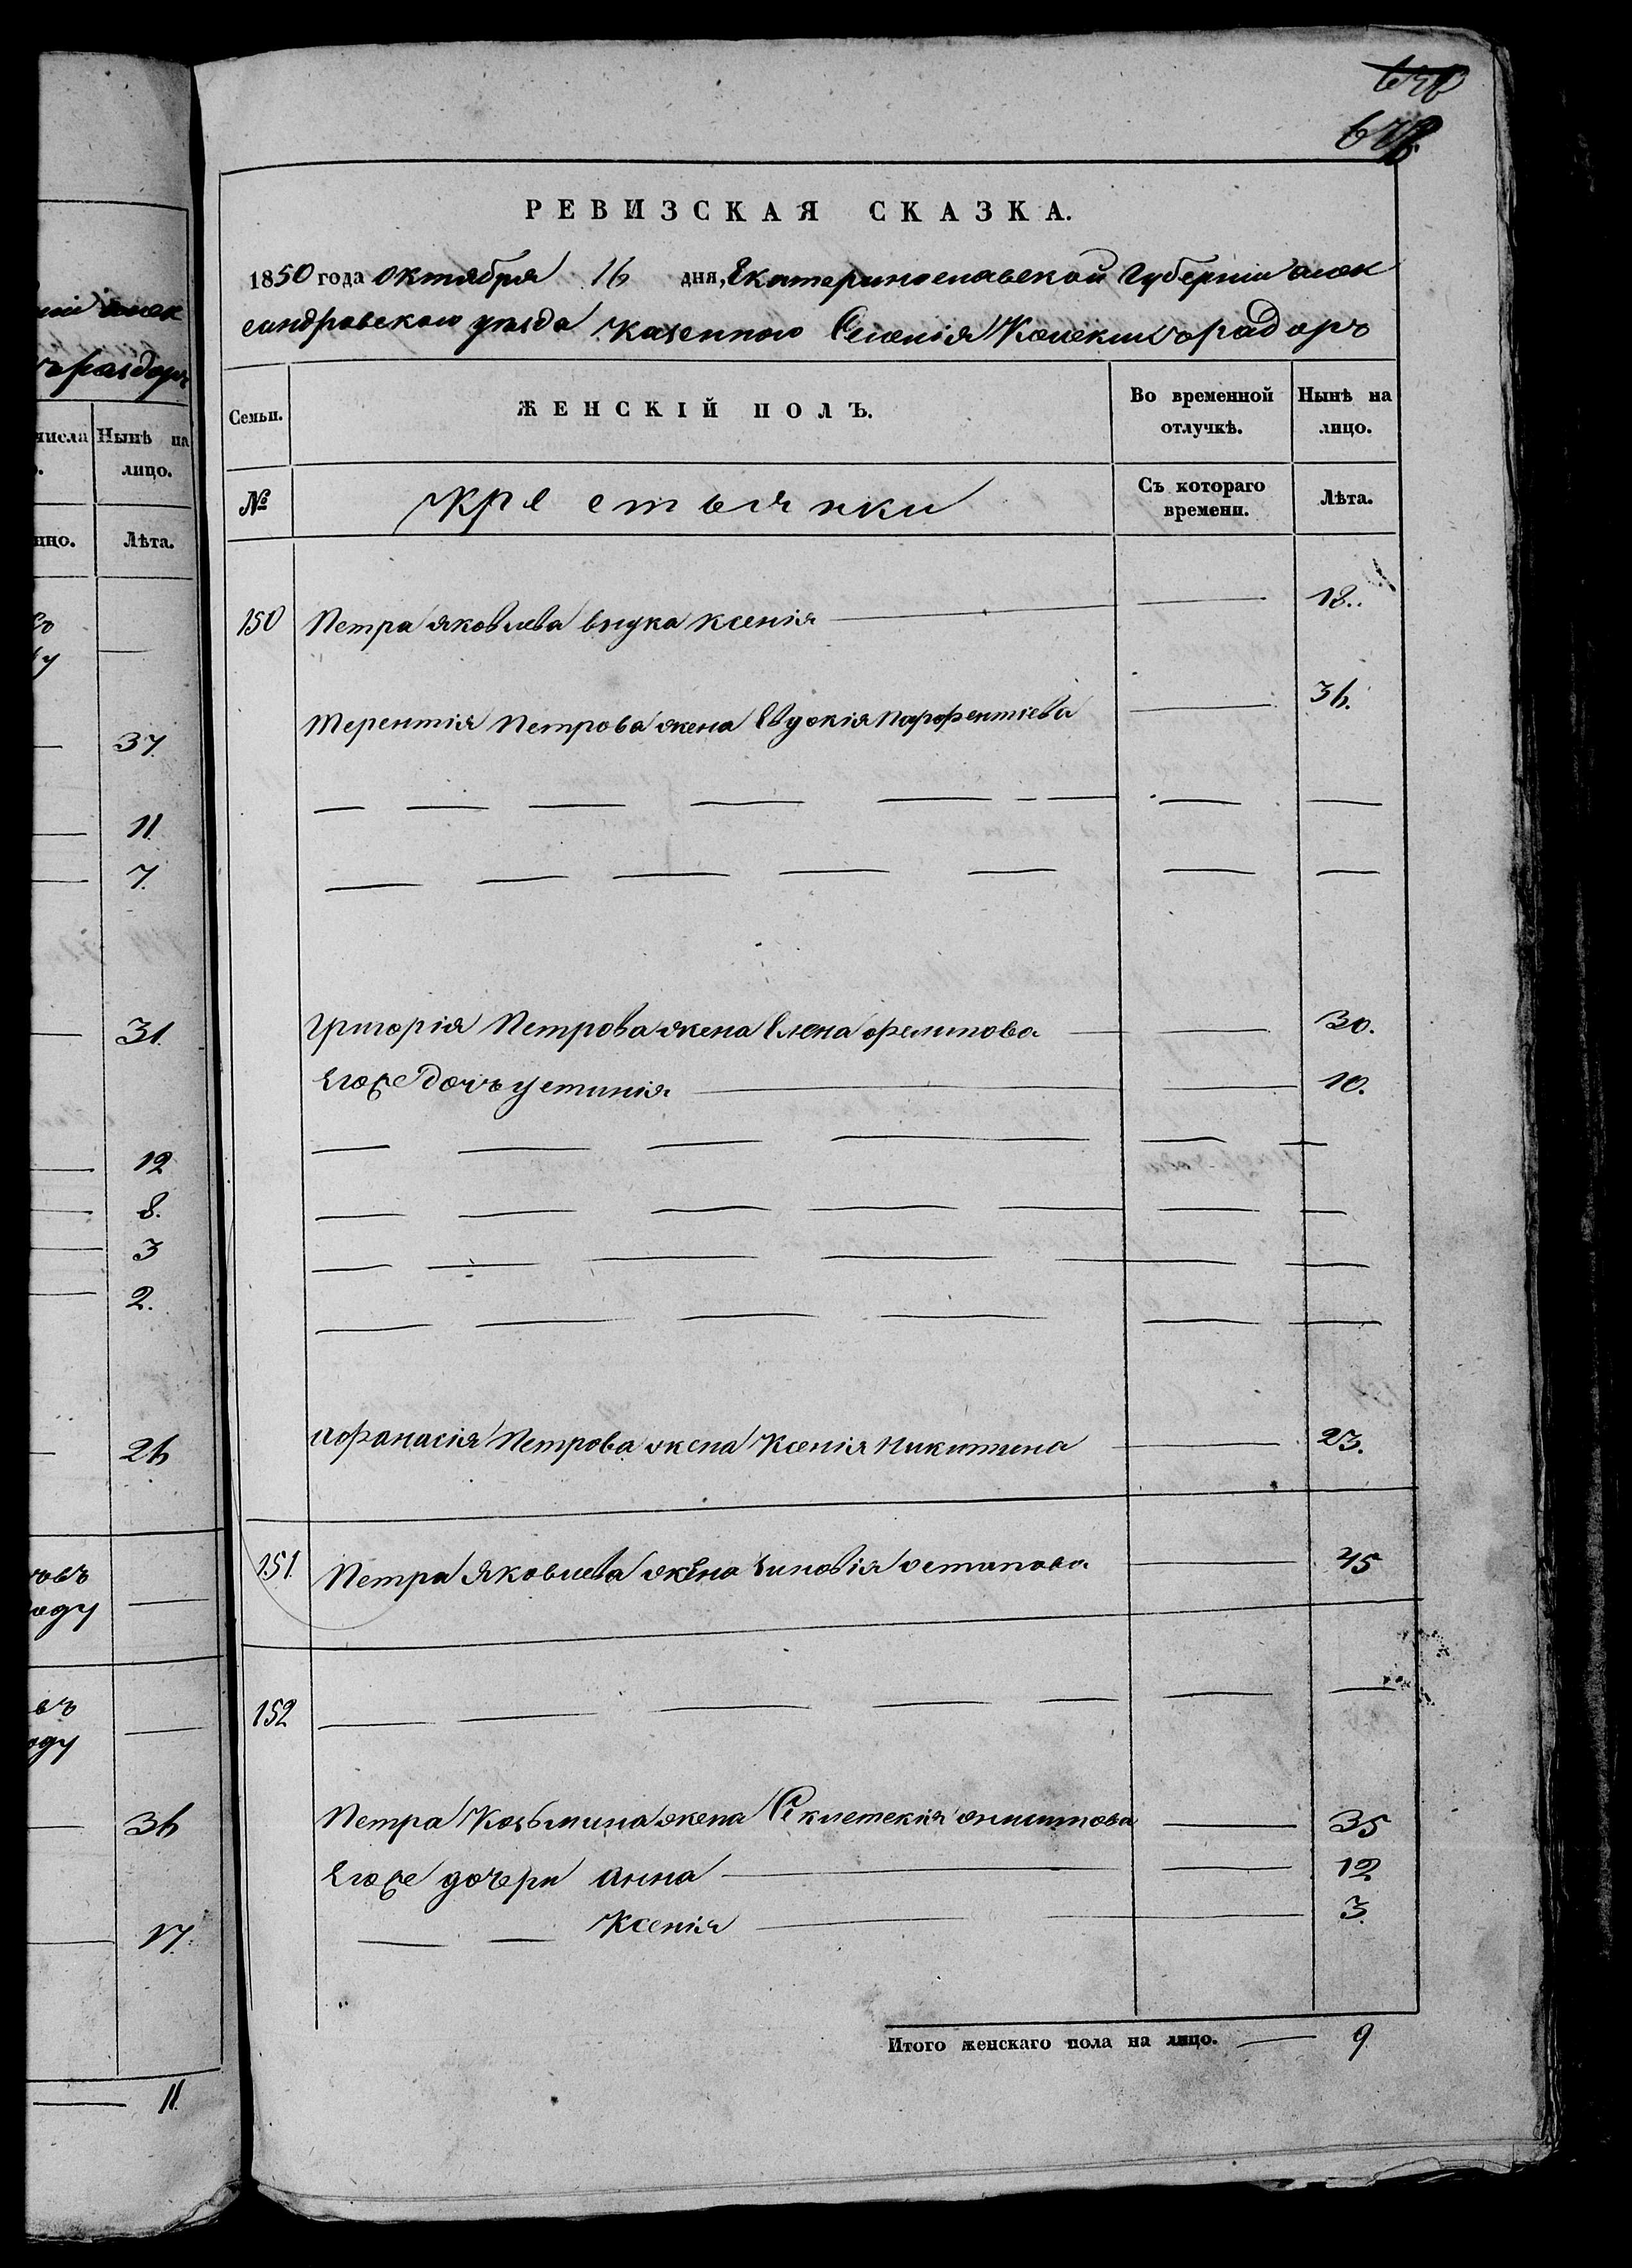 РЕВИЗСКАЯ СКАЗКА.
1850 года октября 16 дня, Екатеринославской Губерніи алек
сандровскаго уезда казенного Селенія Кочекши раздоръ
Семьи.
ЖЕНСКІЙ ПОЛЪ.
Во временной отлучкѣ.
Нынѣ на лицо.
№
крестьянки
Съ котораго времени.
Лѣта.
150 Петра яковлева внука ксенія 18.
Терентія Петрова жена Евдокія парфентіева 36.
Григорія Петрова жена Елена филипова 30.
Егоже дочь устинія 10.
афанасія Петрова жена Ксенія Никитина 23.
151. Петра Яковлева жена Зиновія остапова 45
152
Петра Козьмина жена Секлетекія 35
Егоже дочери анна 12
Ксенія 3.
Итого женскаго пола на лицо. 9
числа
Нынѣ на
лицо.
Лѣта.
37.
11.
7.
31.
12
8.
3
2.
26
36
17.
11.